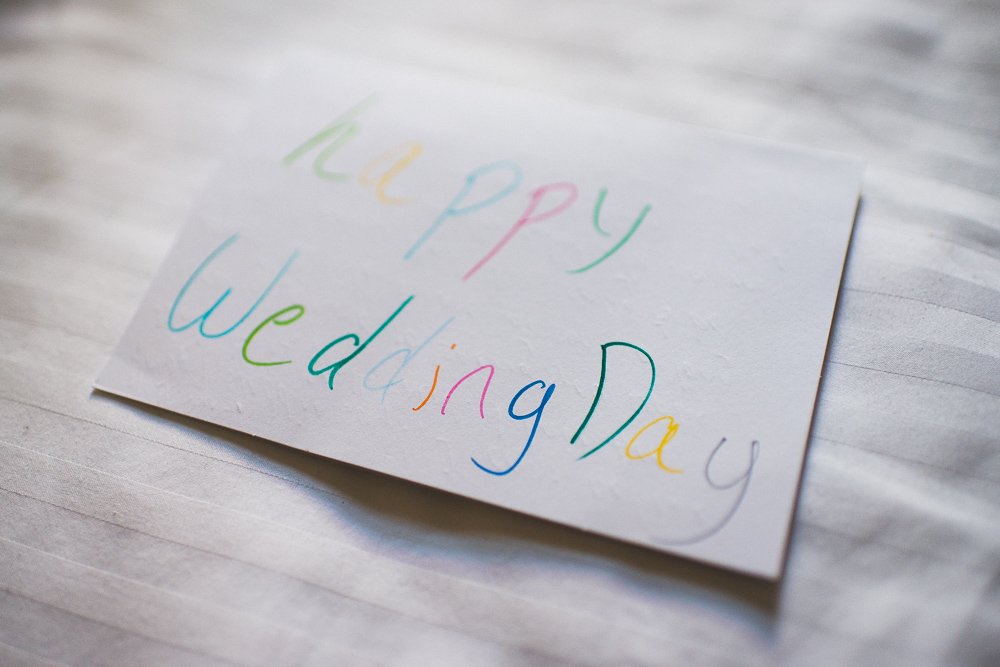 happy
Wedding Day